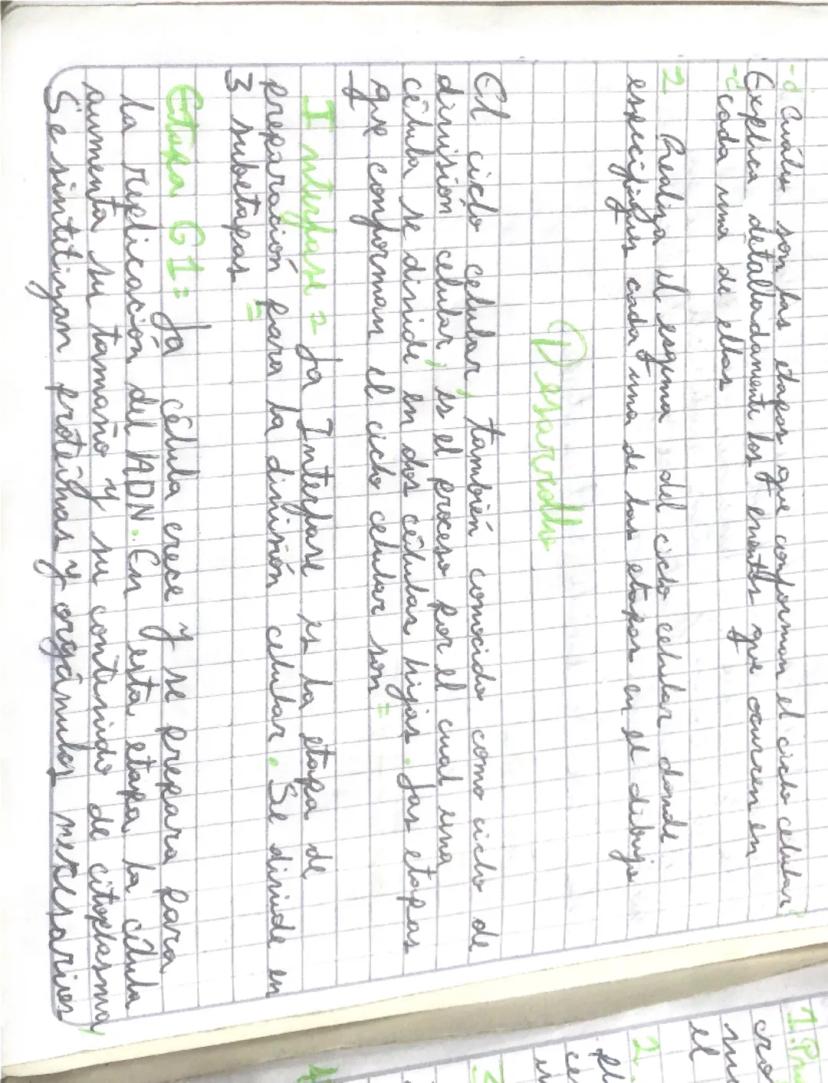 -¿ Cuáles son las etapas que conforman el ciclo celular?
Explica detalladamente los eventos que ocurren en
-¿ cada una de ellas
2 Realiza el esquema del ciclo celular donde
especifiques cada una de las etapas en el dibujo
Desarrollo
El ciclo celular, también conocido como ciclo de
división celular, es el proceso por el cual una
célula se divide en dos células hijas. Las etapas
que conforman el ciclo celular son =
Interfase = La Interfase es la etapa de
preparación para la división celular. Se divide en
3 subetapas =
Etapa G1 = La célula crece y se prepara para
la replicación del ADN. En esta etapa la célula
aumenta su tamaño y su contenido de citoplasma,
Se sintetizan proteínas y orgánulos necesarios
1. Pr
cro
nu
el
2.
el
ce